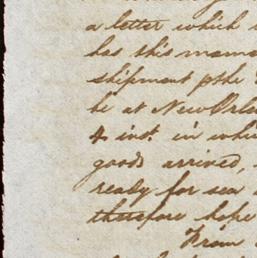 a letter which
has this mome
shipment pthe
be at New Orle
4 inst. in whi
goods arrived,
ready for sea
therefore hope
From